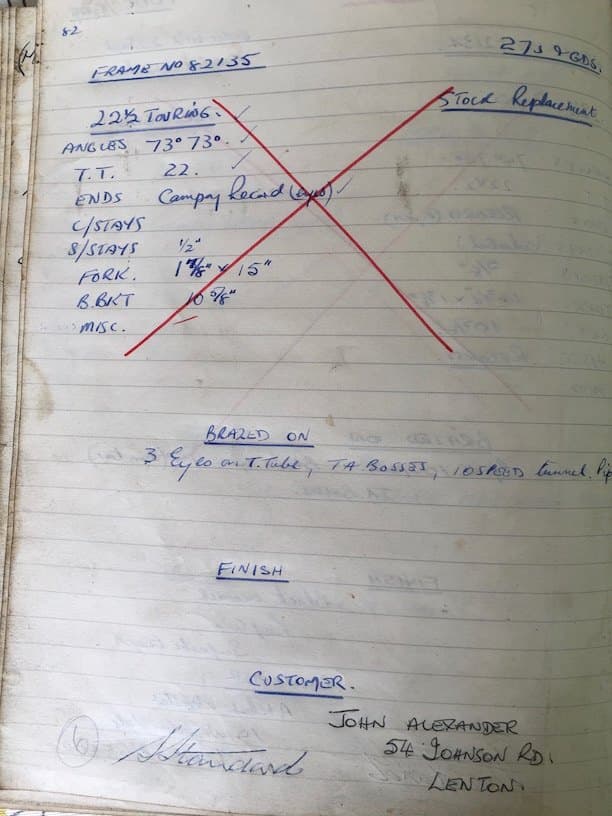 82
27s & GDS.
FRAME NO 82135
22½ TOURING. ✓
Stock Replacement
ANGLES 73° 73°. ✓
T.T. 22. ✓
ENDS Campag Record (eyes) ✓
C/STAYS
S/STAYS ½"
FORK. 1⅞" × 15"
B.BKT 10 ⅝"
MISC. —
BRAZED ON
3 Eyes on T.Tube, TA BOSSES, 10 SPEED tunnel.
FINISH
CUSTOMER.
JOHN ALEXANDER
54 JOHNSON RD.
LENTON.
6
Standard